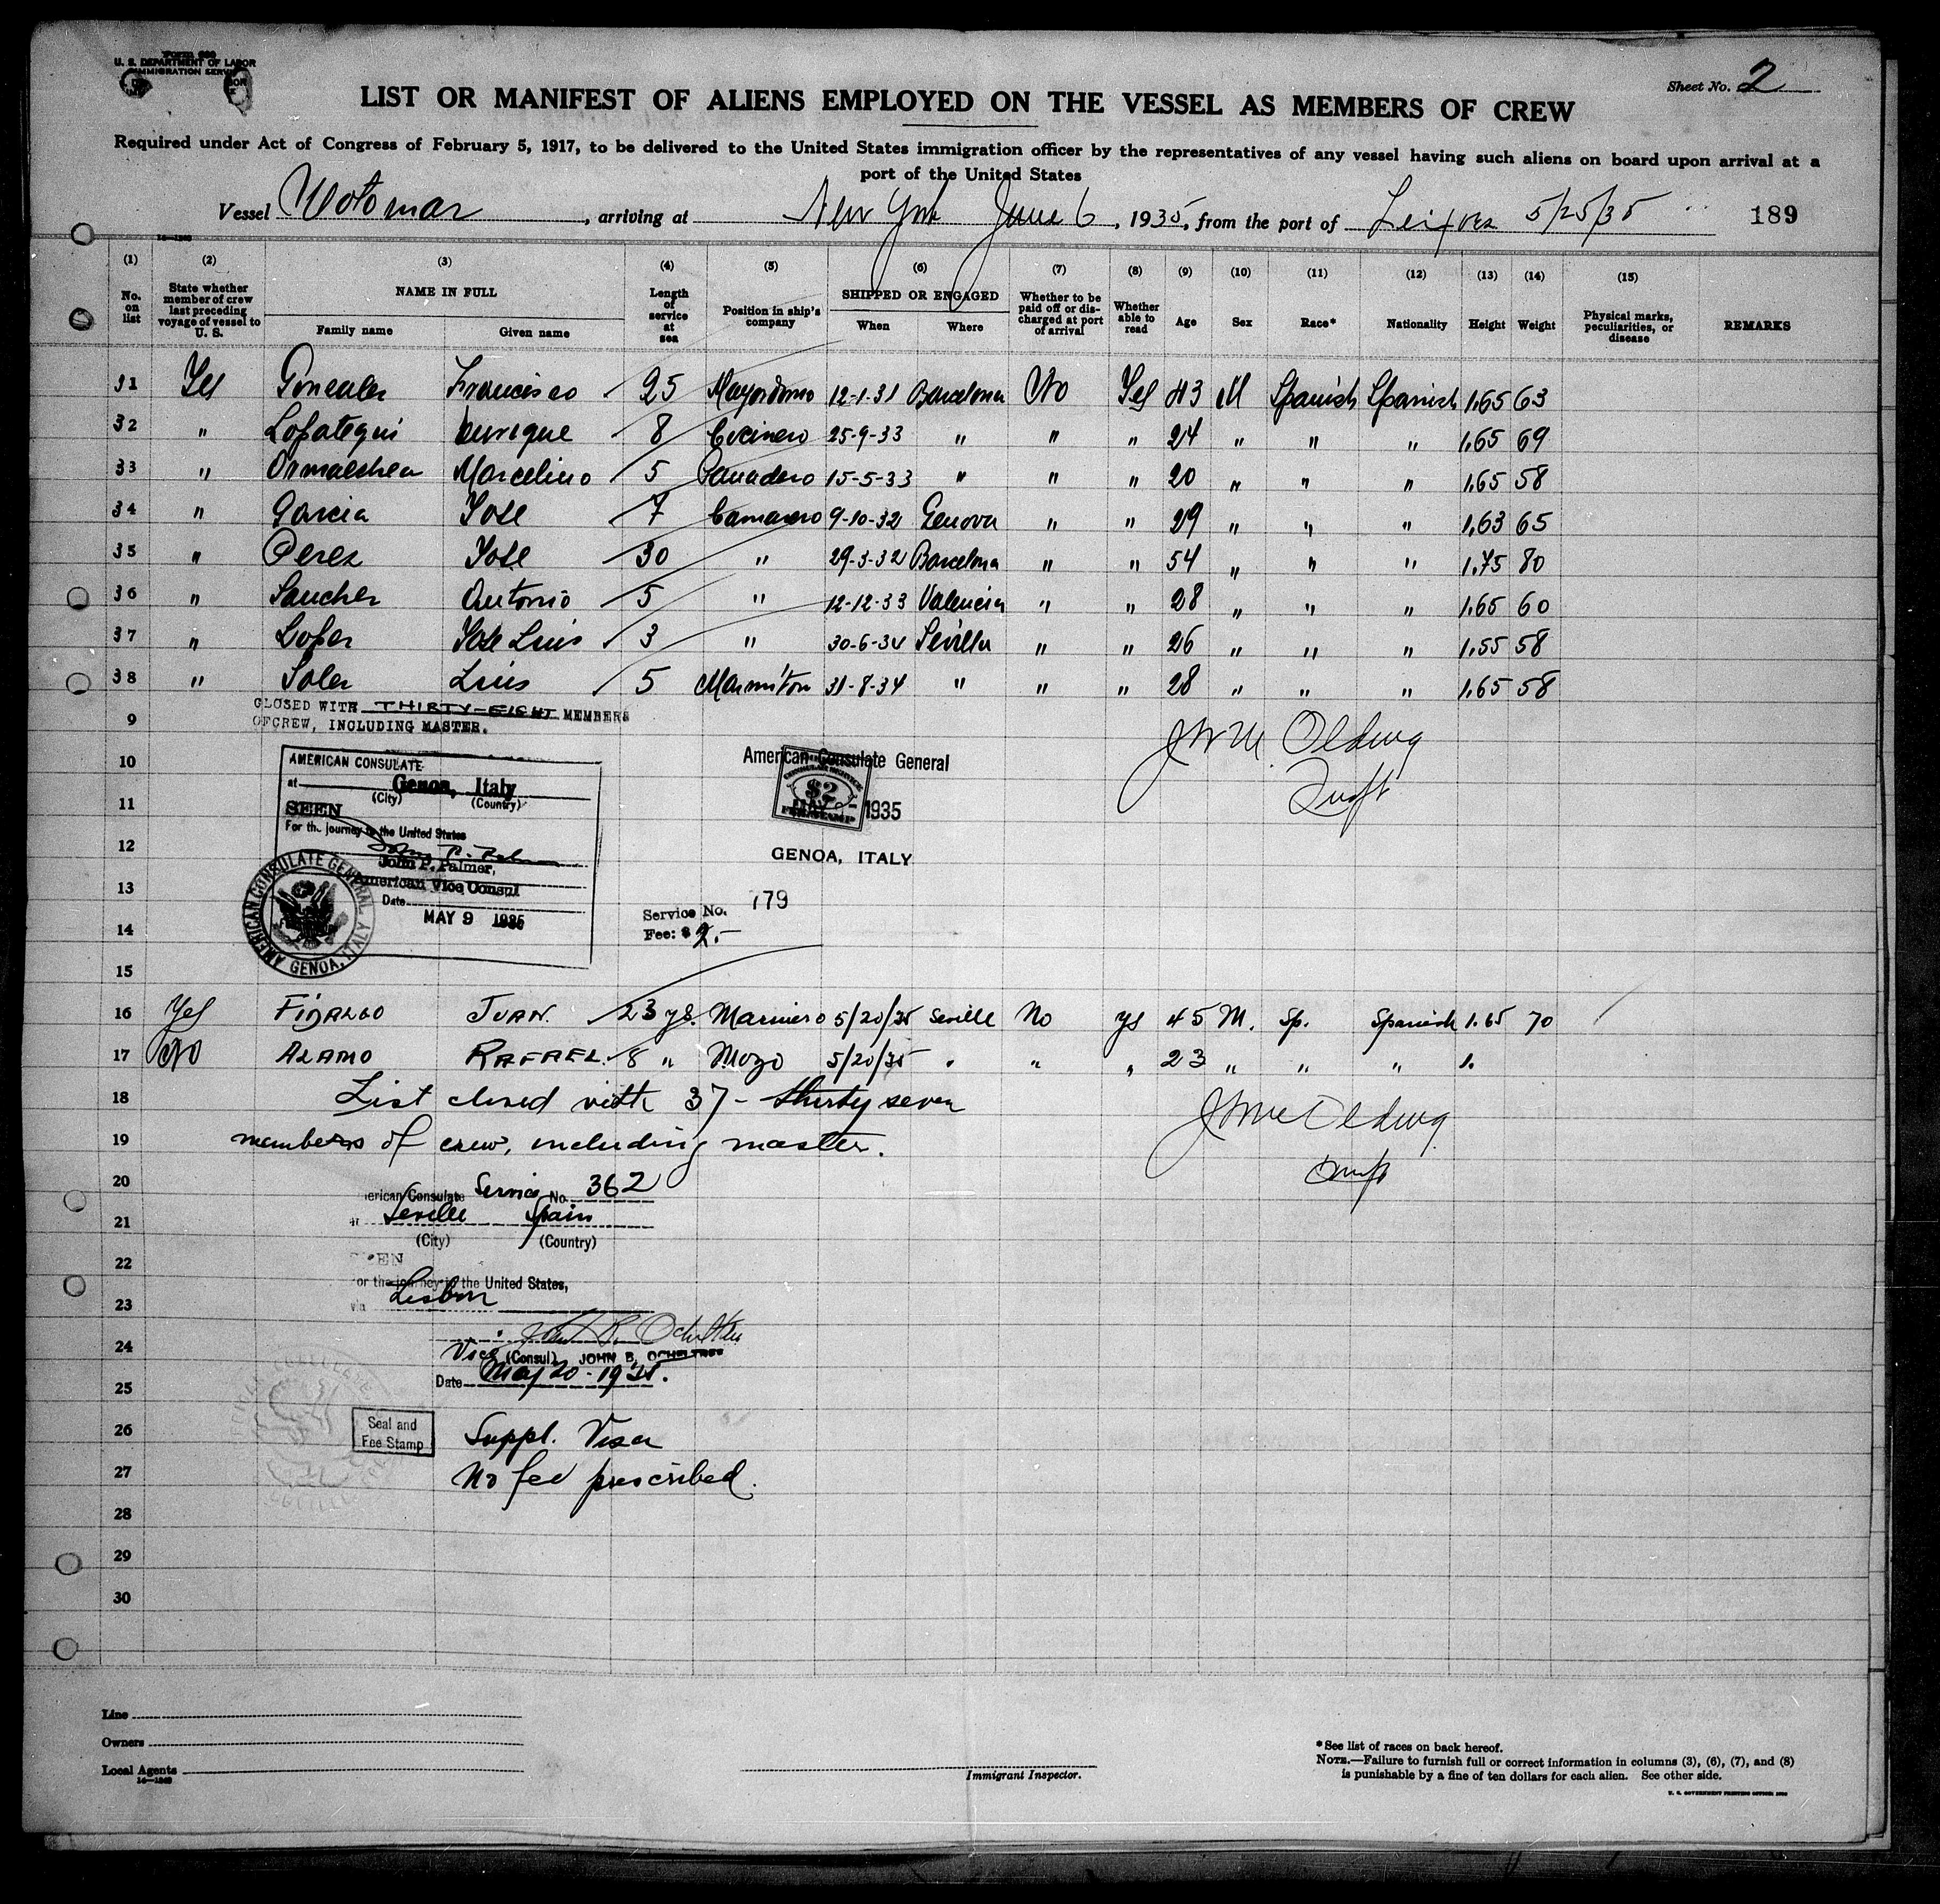 Form 680
U. S. DEPARTMENT OF LABOR
IMMIGRATION SERVICE
Sheet No. 2
LIST OR MANIFEST OF ALIENS EMPLOYED ON THE VESSEL AS MEMBERS OF CREW
Required under Act of Congress of February 5, 1917, to be delivered to the United States immigration officer by the representatives of any vessel having such aliens on board upon arrival at a
port of the United States
Vessel, arriving at New York June 6, 1935, from the port of Leixoes 5/25/35 189
(1) (2) (3) (4) (5) (6) (7) (8) (9) (10) (11) (12) (13) (14) (15)
No. on list State whether member of crew last preceding voyage of vessel to U. S. NAME IN FULL Family name Given name Length of service at sea Position in ship's company SHIPPED OR ENGAGED When Where Whether to be paid off or discharged at port of arrival Whether able to read Age Sex Race* Nationality Height Weight Physical marks, peculiarities, or disease REMARKS
31 Yes Gonzalez Francisco 25 Mayordomo 12-1-31 Barcelona No Yes 43 M Spanish Spanish 1,65 63
32 " Lopategui Enrique 8 Cocinero 25-9-33 " " " 24 " " " 1,65 69
33 " Ormaechea Marcelino 5 Panadero 15-5-33 " " " 20 " " " 1,65 58
34 " Garcia Jose 7 Camarero 9-10-32 Genova " " 29 " " " 1,63 65
35 " Perez Jose 30 " 29-3-32 Barcelona " " 54 " " " 1,75 80
36 " Sanchez Antonio 5 " 12-12-33 Valencia " " 28 " " " 1,65 60
37 " Lopez Jose Luis 3 " 30-6-34 Sevilla " " 26 " " " 1,55 58
38 " Soler Luis 5 Marmiton 31-8-34 " " " 28 " " " 1,65 58
CLOSED WITH THIRTY-EIGHT MEMBERS
OF CREW, INCLUDING MASTER.
9
10
11
12
13
14
15
AMERICAN CONSULATE
at Genoa, Italy
(City) (Country)
SEEN
For the journey to the United States
John P. Palmer,
American Vice Consul
Date MAY 9 1935
AMERICAN CONSULATE GENERAL GENOA, ITALY
American Consulate General
$2
FEE STAMP
1935
GENOA, ITALY
Service No. 179
Fee: $ 2.-
16 Yes FIDALGO JUAN. 23 ys. Marinero 5/20/35 Seville No ys 45 M. Sp. Spanish 1.65 70
17 No ALAMO RAFAEL. 8 " Mozo 5/20/35 " " " 23 " " " 1.
18 List closed with 37 - thirty seven
19 members of crew, including master.
20
21
22
23
24
25
26
27
28
29
30
American Consulate Service No. 362
Seville Spain
(City) (Country)
SEEN
For the journey to the United States,
via Lisbon
Vice (Consul) JOHN B. OCHELTREE
Date May 20-1935.
Seal and
Fee Stamp
Suppl. Visa
No fee prescribed.
Line
Owners
Local Agents
14—1240
Immigrant Inspector.
*See list of races on back hereof.
NOTE.—Failure to furnish full or correct information in columns (3), (6), (7), and (8)
is punishable by a fine of ten dollars for each alien. See other side.